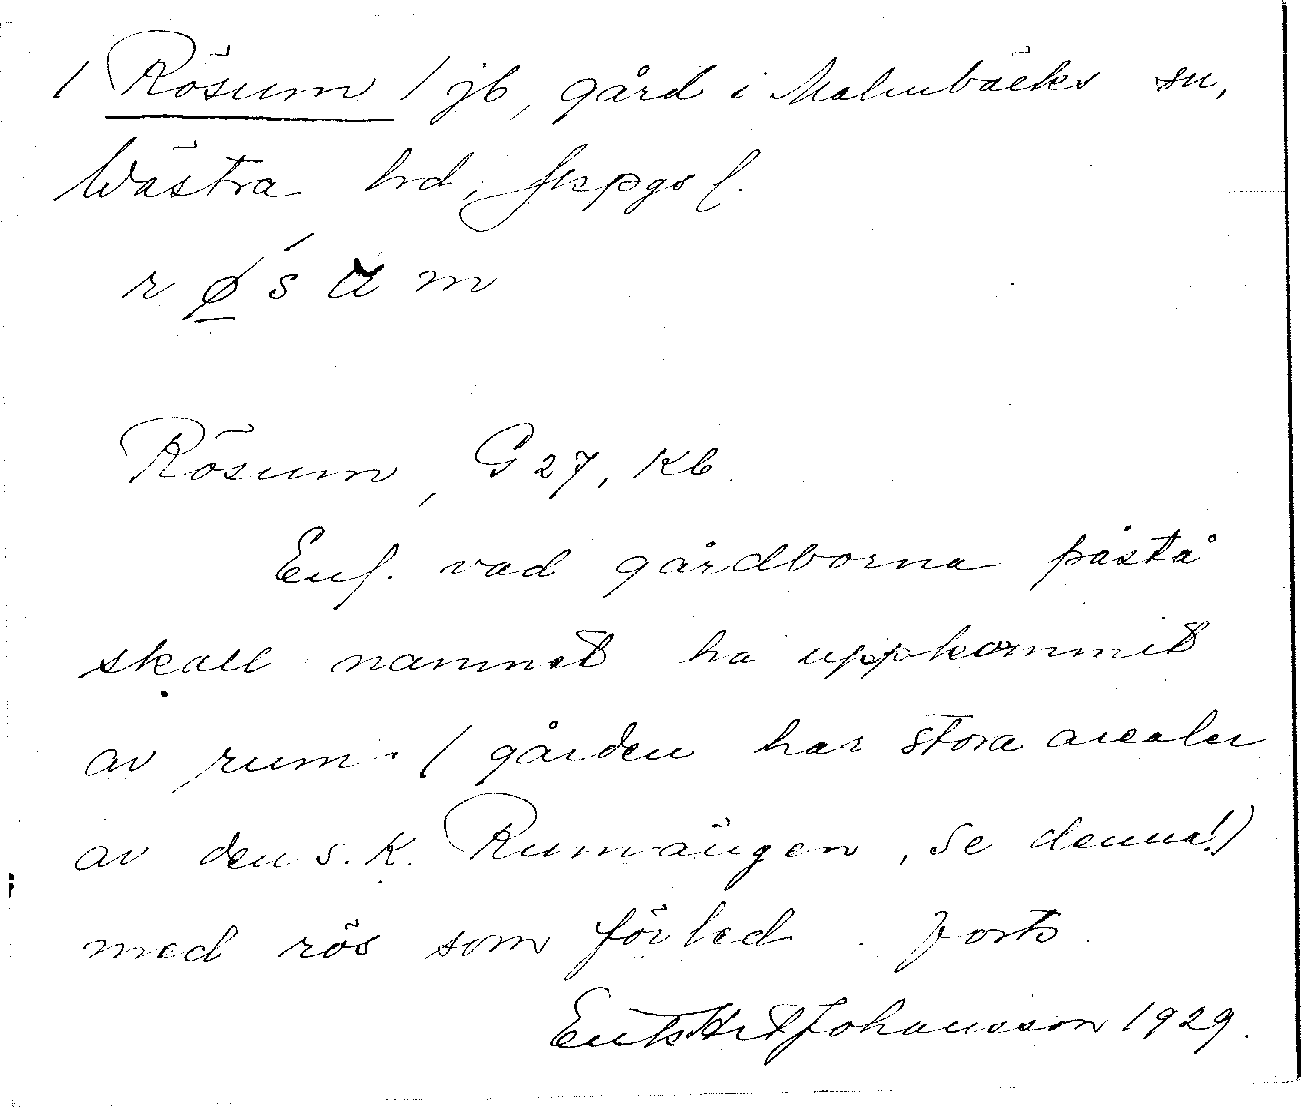 / Rösum / jb, gård i Malmbäcks sn,
Wästra hd, Jkpgs l.
r ø s a m
Rösum, G 27, Kb.
Enl. vad gårdborna påstå
skall namnet ha uppkommit
av rum. ( gården har stora arealer
av den s.k. Rumängen, se denna!)
med rös som förled. Forts.
Johansson 1929.